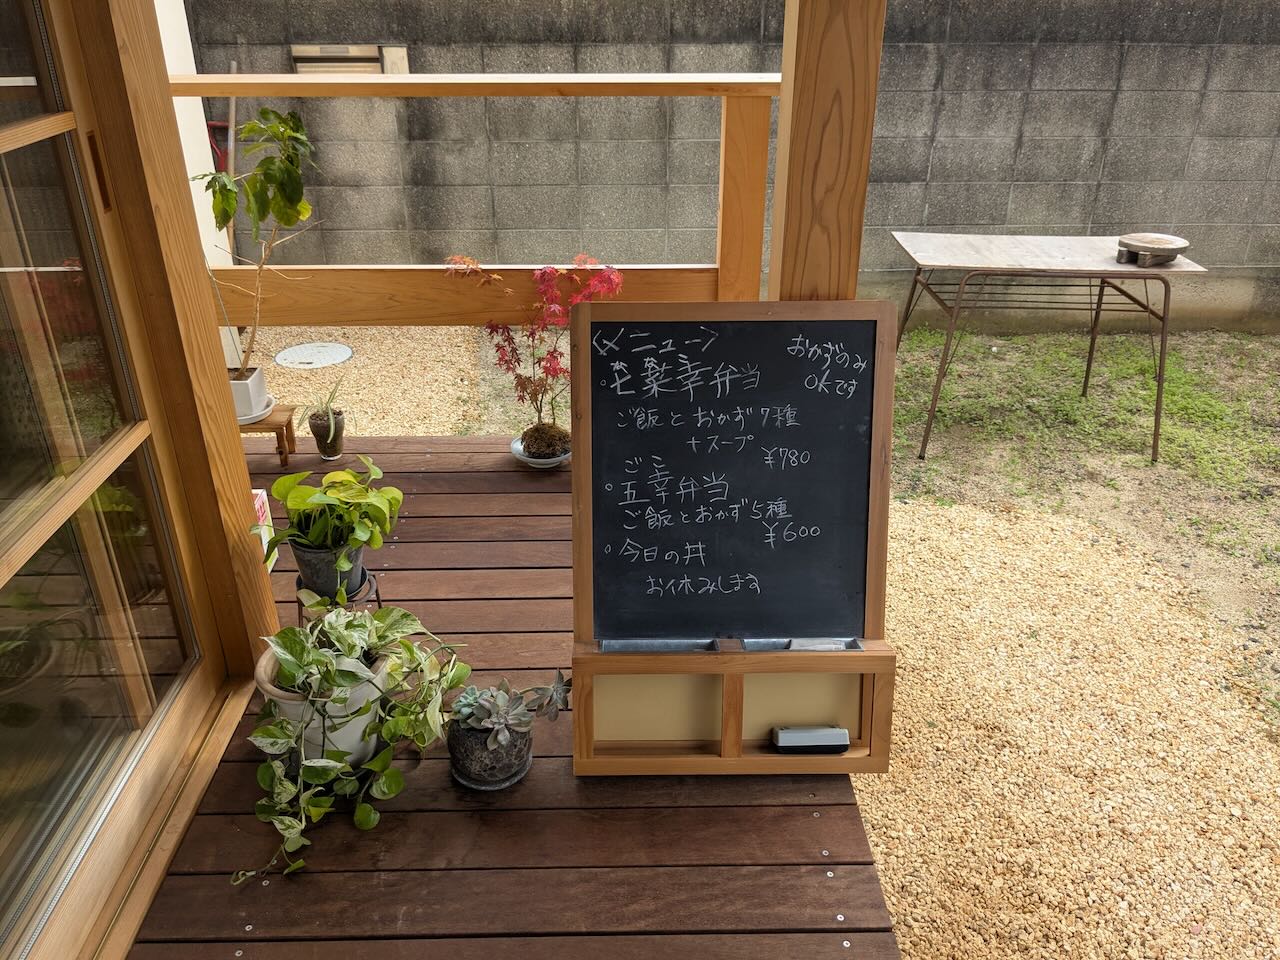 〈メニュー〉
おかずのみ
OKです
。七菜幸弁当
ご飯とおかず7種
+スープ
¥780
ごこ
。五幸弁当
ご飯とおかず5種
¥600
。今日の丼
お休みします